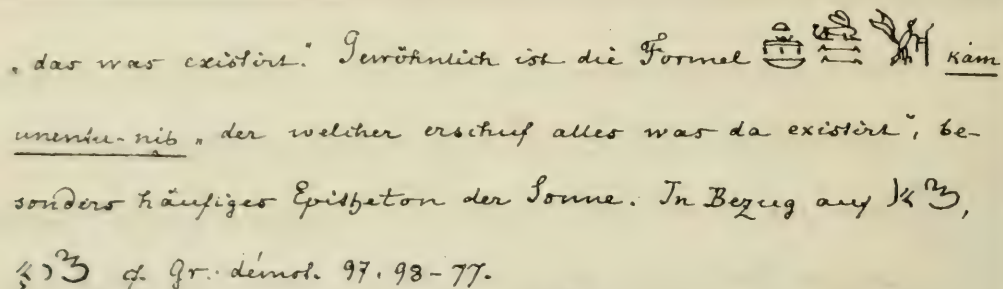 „das was existirt.“ Gewöhnlich ist die Formel kam
unentu-nib „der welcher erschuf alles was da existirt“, be-
sonders häufiges Epitheton der Sonne. In Bezug auf
cf. Gr. démot. 97. 98-77.